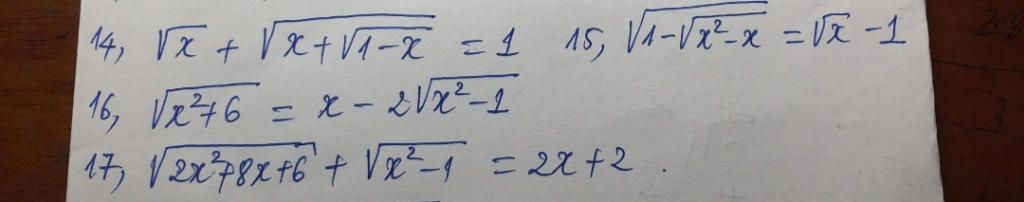 14, √x + √(x+√(1-x)) = 1 15, √(1-√(x²-x)) = √x - 1
16, √(x²+6) = x - 2√(x²-1)
17, √(2x²+8x+6) + √(x²-1) = 2x+2.